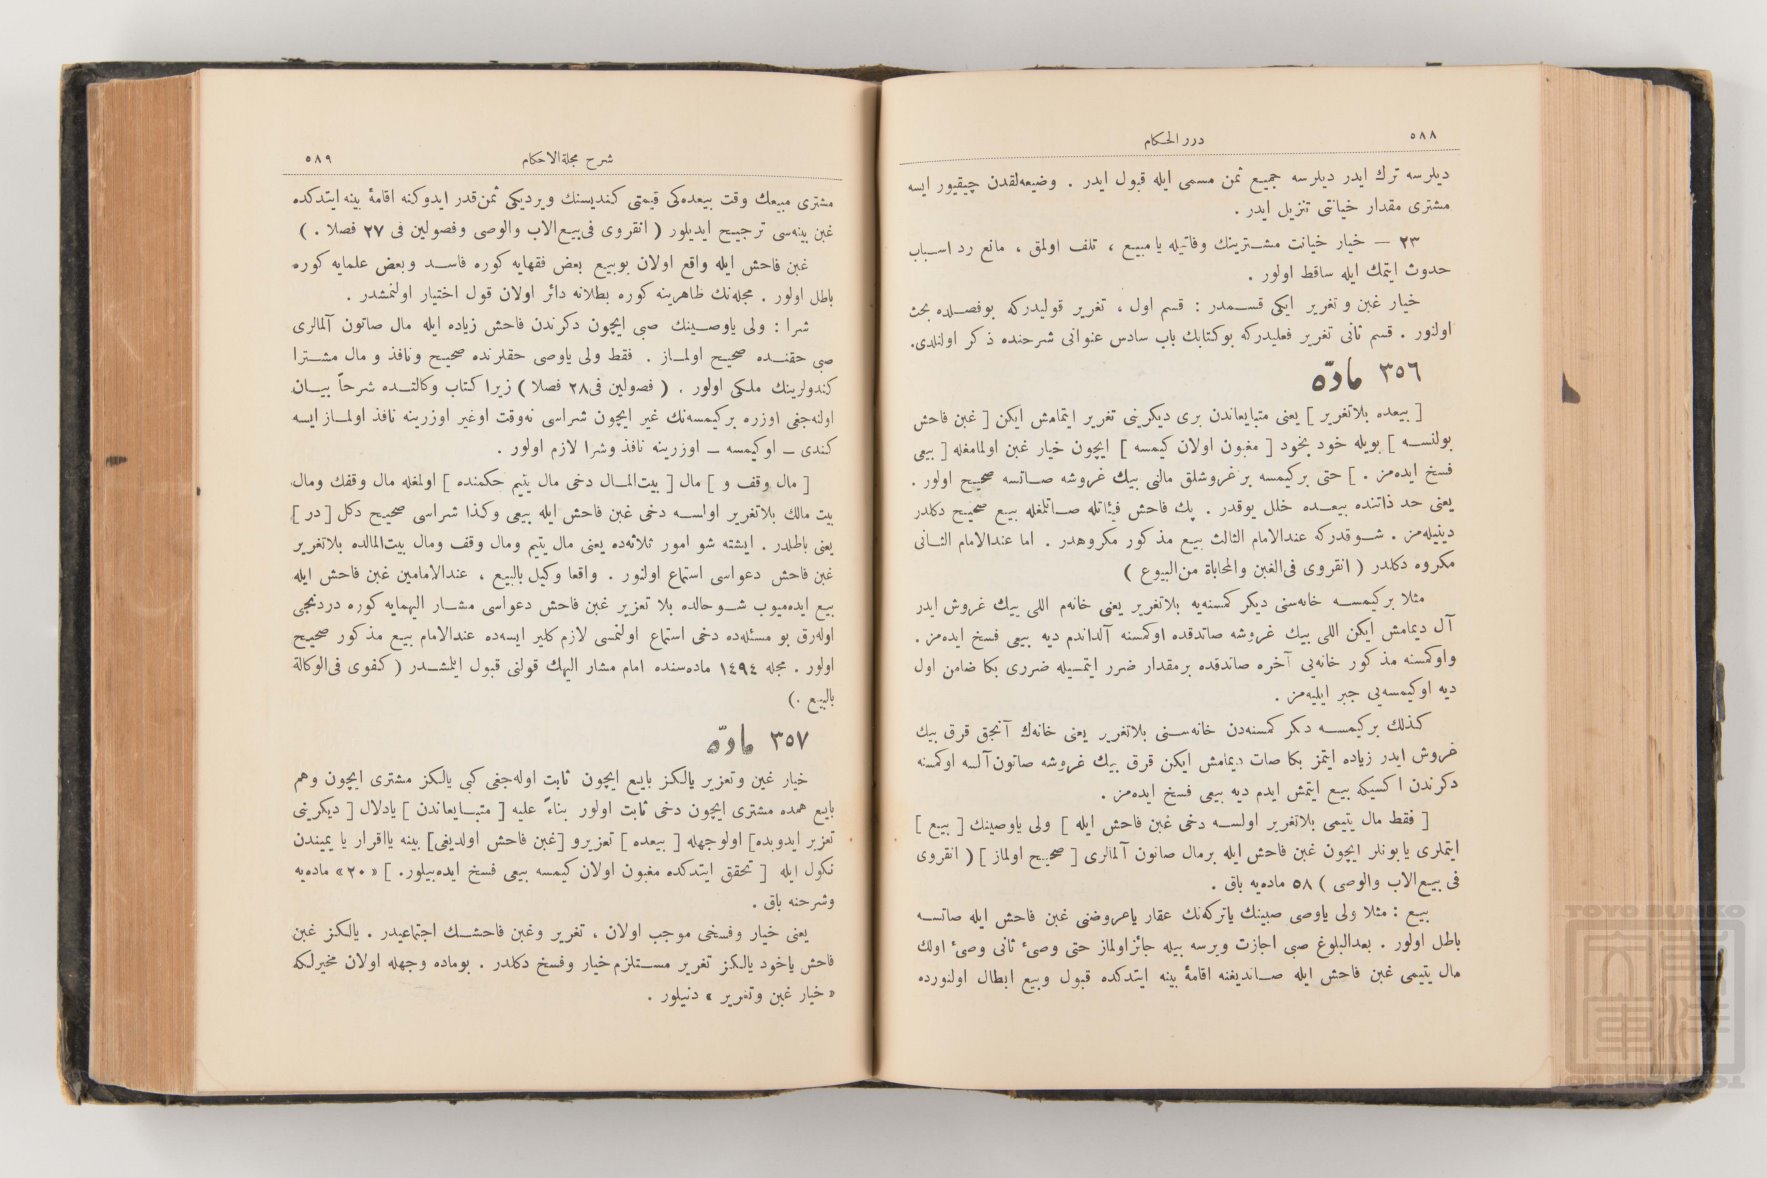 ٥٨٨
درر الحكام
ديلرسه ترك ايدر ديلرسه جميع ثمن مسمى ايله قبول ايدر . وضيعه‌لقدن چيقيور ايسه
مشترى مقدار خيانتى تنزيل ايدر .
٢٣ — خيار خيانت مشترينك وفاتيله يا مبيع ، تلف اولمق ، مانع رد اسباب
حدوث ايتمك ايله ساقط اولور .
خيار غبن و تغرير ايكى قسمدر : قسم اول ، تغرير قوليدركه بوفصلده بحث
اولنور . قسم ثانى تغرير فعليدركه بوكتابك باب سادس عنوانى شرحنده ذكر اولنلدى.
٣٥٦ مادّه
[ بيعده بلاتغرير ] يعنى متبايعاندن برى ديكرينى تغرير ايتمامش ايكن [ غبن فاحش
بولنسه ] بويله خود بخود [ مغبون اولان كيمسه ] ايچون خيار غبن اولمامغله [ بيعى
فسخ ايده‌مز . ] حتى بركيمسه بر غروشلق مالنى بيك غروشه صاتسه صحيح اولور .
يعنى حد ذاتنده بيعده خلل يوقدر . پك فاحش فيئاتله صاتلمغله بيع صحيح دكلدر
دينيله‌مز . شوقدركه عندالامام الثالث بيع مذكور مكروهدر . اما عندالامام الثانى
مكروه دكلدر ( انقروى فى‌الغبن والمحاباة من‌البيوع )
مثلا بركيمسه خانه‌سنى ديكر كمسنه‌يه بلاتغرير يعنى خانه‌م اللى بيك غروش ايدر
آل ديمامش ايكن اللى بيك غروشه صاتدقده اوكمسنه آلداندم ديه بيعى فسخ ايده‌مز .
واوكمسنه مذكور خانه‌يى آخره صاتدقده برمقدار ضرر ايتمسيله ضررى بكا ضامن اول
ديه اوكيمسه‌يى جبر ايليه‌مز .
كذلك بركيمسه دكر كمسنه‌دن خانه‌سنى بلاتغرير يعنى خانه‌ك آنجق قرق بيك
غروش ايدر زياده ايتمز بكا صات ديمامش ايكن قرق بيك غروشه صاتون‌آلسه اوكمسنه
دكرندن اكسيكه بيع ايتمش ايدم ديه بيعى فسخ ايده‌مز .
[ فقط مال يتيمى بلاتغرير اولسه دخى غبن فاحش ايله ] ولى ياوصينك [ بيع ]
ايتملرى يا بونلر ايچون غبن فاحش ايله برمال صاتون آلمالرى [ صحيح اولماز ] ( انقروى
فى بيع‌الاب والوصى ) ٥٨ ماده‌يه باق .
بيع : مثلا ولى ياوصى صبينك ياتركه‌نك عقار ياعروضنى غبن فاحش ايله صاتسه
باطل اولور . بعدالبلوغ صبى اجازت ويرسه بيله جائزاولماز حتى وصئ ثانى وصئ اولك
مال يتيمى غبن فاحش ايله صانديغنه اقامۀ بينه ايتدكده قبول وبيع ابطال اولنورده
شرح مجلة‌الاحكام
٥٨٩
مشترى مبيعك وقت بيعده‌كى قيمتى كنديسنك ويرديكى ثمن‌قدر ايدوكنه اقامۀ بينه ايتدكده
غبن بينه‌سى ترجيح ايديلور ( انقروى فى‌بيع‌الاب والوصى وفصولين فى ٢٧ فصلا . )
غبن فاحش ايله واقع اولان بوبيع بعض فقهايه كوره فاسد وبعض علمايه كوره
باطل اولور . مجله‌نك ظاهرينه كوره بطلانه دائر اولان قول اختيار اولنمشدر .
شرا : ولى ياوصينك صبى ايچون دكرندن فاحش زياده ايله مال صاتون آلمالرى
صبى حقنده صحيح اولماز . فقط ولى ياوصى حقلرنده صحيح ونافذ و مال مشترا
كندولرينك ملكى اولور . ( فصولين فى‌٢٨ فصلا ) زيرا كتاب وكالتده شرحاً بيان
اولنه‌جغى اوزره بركيمسه‌نك غير ايچون شراسى نه‌وقت اوغير اوزرينه نافذ اولماز ايسه
كندى ــ اوكيمسه ــ اوزرينه نافذ وشرا لازم اولور .
[ مال وقف و ] مال [ بيت‌المال دخى مال يتيم حكمنده ] اولمغله مال وقفك ومال
بيت مالك بلاتغرير اولسه دخى غبن فاحش ايله بيعى وكذا شراسى صحيح دكل [ در ]
يعنى باطلدر . ايشته شو امور ثلاثه‌ده يعنى مال يتيم ومال وقف ومال بيت‌المالده بلاتغرير
غبن فاحش دعواسى استماع اولنور . واقعا وكيل بالبيع ، عندالامامين غبن فاحش ايله
بيع ايده‌ميوب شوحالده بلا تعزير غبن فاحش دعواسى مشار اليهمايه كوره دردنجى
اوله‌رق بو مسئله‌ده دخى استماع اولنمسى لازم كلير ايسه‌ده عندالامام بيع مذكور صحيح
اولور . مجله ١٤٩٤ ماده‌سنده امام مشار اليهك قولنى قبول ايلمشدر ( كفوى فى‌الوكالة
بالبيع .)
٣٥٧ مادّه
خيار غبن وتعزير يالكز بايع ايچون ثابت اوله‌جغى كبى يالكز مشترى ايچون وهم
بايع همده مشترى ايچون دخى ثابت اولور بناءً عليه [ متبايعاندن ] يادلال [ ديكرينى
تعزير ايدوبده] اولوجهله [ بيعده ] تعزيرو [غبن فاحش اولديغى] بينه يااقرار يا يميندن
نكول ايله [ تحقق ايتدكده مغبون اولان كيمسه بيعى فسخ ايده‌بيلور. ] «٢٠» ماده‌يه
وشرحنه باق .
يعنى خيار وفسخى موجب اولان ، تغرير وغبن فاحشك اجتماعيدر . يالكز غبن
فاحش ياخود يالكز تغرير مستلزم خيار وفسخ دكلدر . بوماده وجهله اولان مخيرلكه
« خيار غبن وتغرير » دنيلور .
TOYO BUNKO